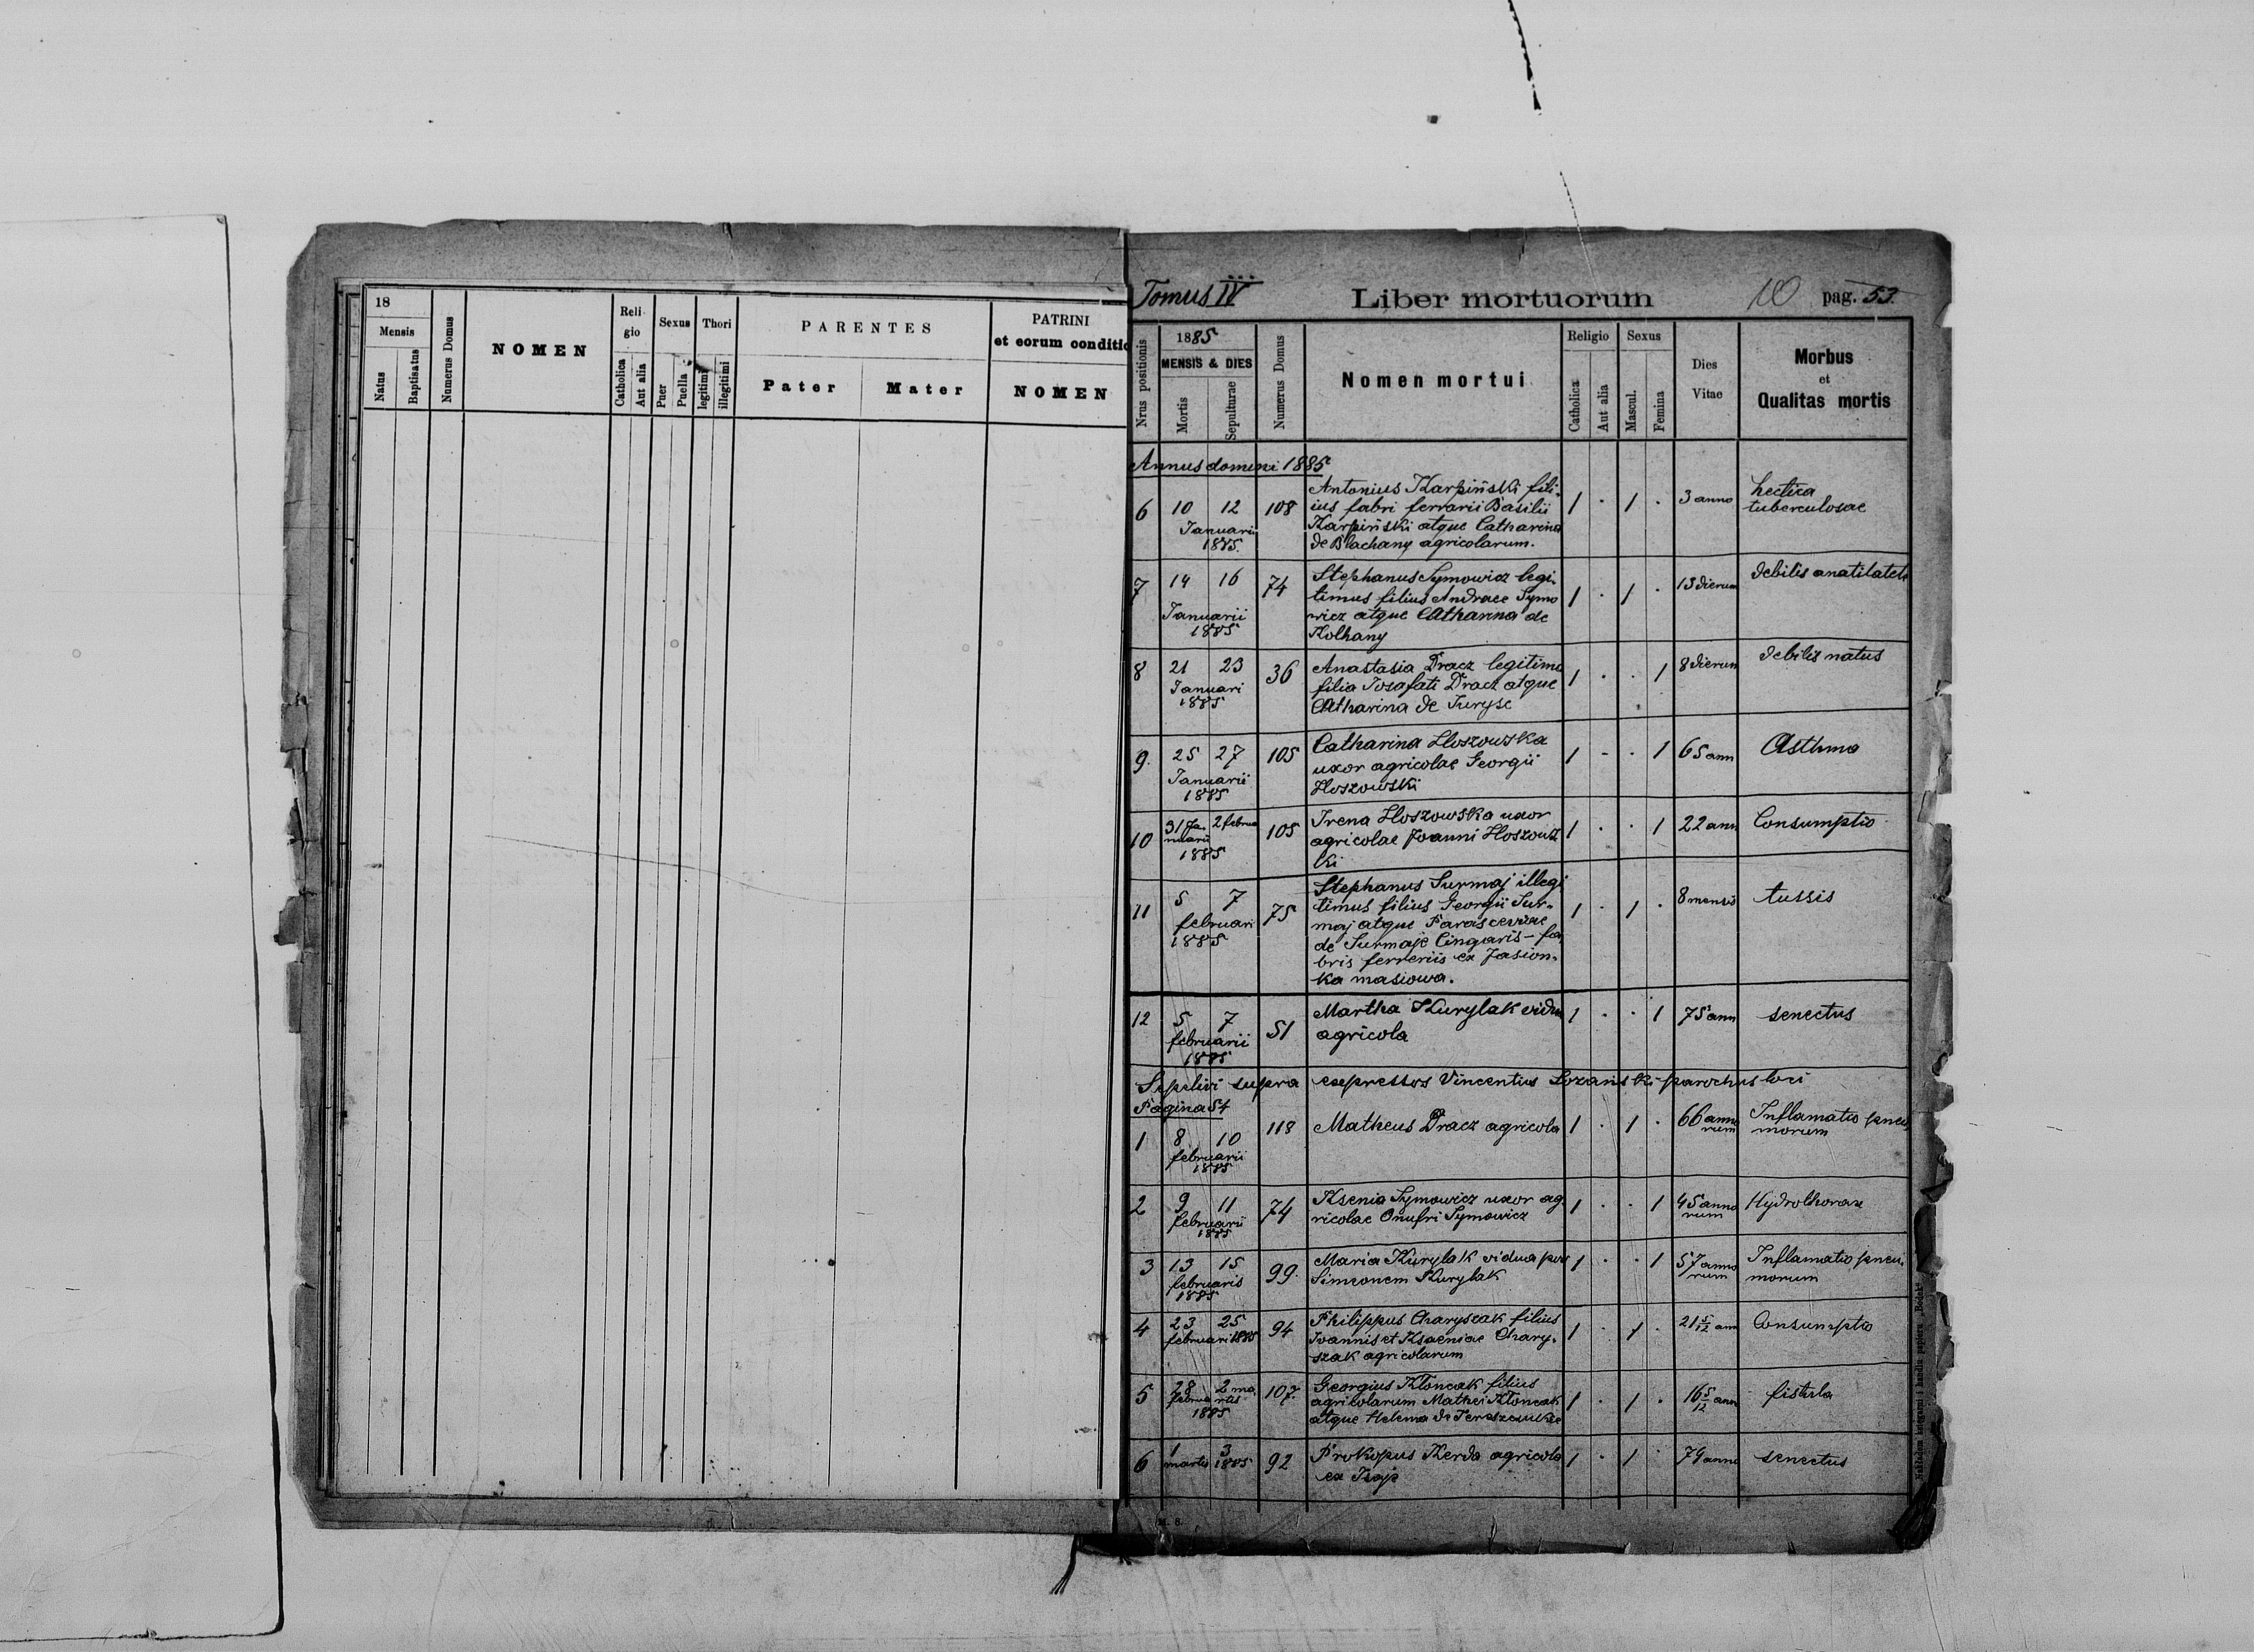 18
Mensis
Natus
Baptisatus
Numerus Domus
NOMEN
Religio
Catholica
Aut alia
Sexus
Puer
Puella
Thori
legitimi
illegitimi
PARENTES
Pater
Mater
PATRINI
et eorum conditio
NOMEN
Tomus IV
Liber mortuorum
10
pag. 53.
Nrus positionis
1885
MENSIS & DIES
Mortis
Sepulturae
Numerus Domus
Nomen mortui
Religio
Catholica
Aut alia
Sexus
Mascul.
Femina
Dies
Vitae
Morbus
et
Qualitas mortis
Annus domini 1885
6 10 12 Januarii 1885. 108
Antonius Karpiński fili-
ius fabri ferrarii Basilii
Karpiński atque Catharina
de Blachany agricolarum.
1 . 1 . 3 anno
hectica
tuberculosae
7 14 16 Januarii 1885 74
Stephanus Symowicz legi-
timus filius Andraee Symo
wicz atque Catharina de
Kolhany
1 . 1 . 13 dierum
debilis
8 21 23 Januari 1885 36
Anastasia Dracz legitima
filia Josafati Dracz atque
Catharina de Juryse
1 . . 1 8 dierum debilis natus
9. 25 27 Januarii 1885 105
Catharina Hoszowska
uxor agricolae Georgii
Hoszowski
1 - . 1 65 ann Asthma
10 31 Ja- nuarii 2 februa 1885 105
Irena Hoszowska uxor
agricolae Joanni Hoszows
ki
1 . . 1 22 ann Consumptio
11 5 7 februari 1885 75
Stephanus Surmaj illegi
timus filius Georgii Sur-
maj atque Parascevae
de Surmaje Cingaris - fa
bris ferreriis ex Jasion-
ka masiowa.
1 . 1 . 8 mensis tussis
12 5 7 februarii 1885 51
Martha Kurylak vidua
agricola
1 . . 1 75 ann senectus
Sepelivi supra expressos Vincentius Lozański parochus loci
Pagina 54
1 8 10 februarii 1885 118
Matheus Dracz agricola
1 . 1 . 66 anno rum
Inflamatio pneu
morum
2 9 11 februarii 1885 74
Ksenia Symowicz uxor ag
ricolae Onufri Symowicz
1 . . 1 45 anno rum Hydrothorax
3 13 15 februaris 1885 99.
Maria Kurylak vidua pos
Simeonem Kurylak
1 . . 1 57 anno rum
Inflamatio pneu-
morum
4 23 25 februari 1885 94
Philippus Charyszak filius
Ivannis et Ksaeniae Chary-
szak agricolarum
1 . 1 . 21 5/12 ann Consumptio
5 28 februa 2 ma rtis 1885 107.
Georgius Kloncak filius
agricolarum Mathei Kloncak
atque Helena de
1 . 1 . 16 5/12 ann fistula
6 1 3 martis 1885 92
Prokopus Kerda agricola
ex Isaje
1 . 1 . 79 anno senectus
M. 8.